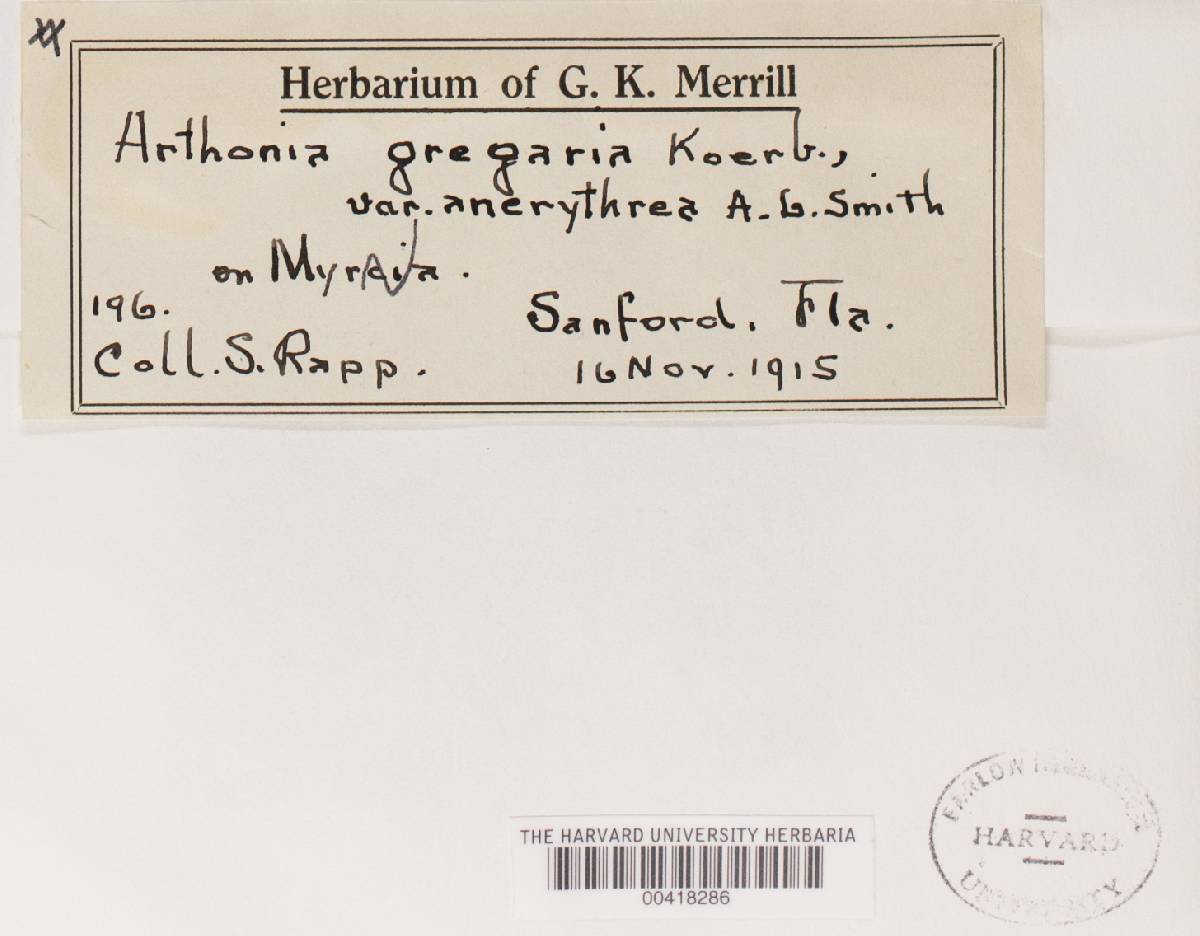 XX
Herbarium of G. K. Merrill
Arthonia gregaria Koerb.,
var. anerythrea A. L. Smith
on
196.
Sanford, Fla.
Coll. S. Rapp.
16 Nov. 1915
THE HARVARD UNIVERSITY HERBARIA
00418286
FARLOW
HARVARD
UNIVERSITY